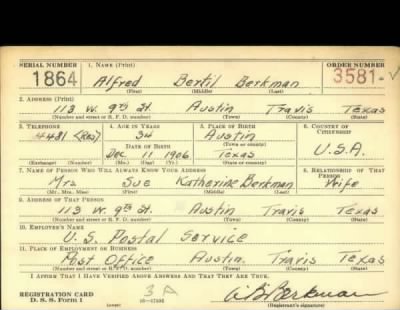 SERIAL NUMBER 1. NAME (Print) ORDER NUMBER
1864 Alfred Bertil Berkman 3581
(First) (Middle) (Last)
2. ADDRESS (Print)
113 W. 9th St. Austin Travis Texas
(Number and street or R. F. D. number) (Town) (County) (State)
3. TELEPHONE 4. AGE IN YEARS 5. PLACE OF BIRTH 6. COUNTRY OF CITIZENSHIP
4481 (Res) 34 Austin
(Town or county)
DATE OF BIRTH
Dec 11 1906 Texas U.S.A.
(Exchange) (Number) (Mo.) (Day) (Yr.) (State or country)
7. NAME OF PERSON WHO WILL ALWAYS KNOW YOUR ADDRESS 8. RELATIONSHIP OF THAT PERSON
Mrs Sue Katherine Berkman Wife
(Mr., Mrs., Miss) (First) (Middle) (Last)
9. ADDRESS OF THAT PERSON
113 W. 9th St. Austin Travis Texas
(Number and street or R. F. D. number) (Town) (County) (State)
10. EMPLOYER'S NAME
U.S. Postal Service
11. PLACE OF EMPLOYMENT OR BUSINESS
Post Office Austin Travis Texas
(Number and street or R. F. D. number) (Town) (County) (State)
I AFFIRM THAT I HAVE VERIFIED ABOVE ANSWERS AND THAT THEY ARE TRUE.
REGISTRATION CARD 3A A B Berkman
D. S. S. Form 1 (Registrant's signature)